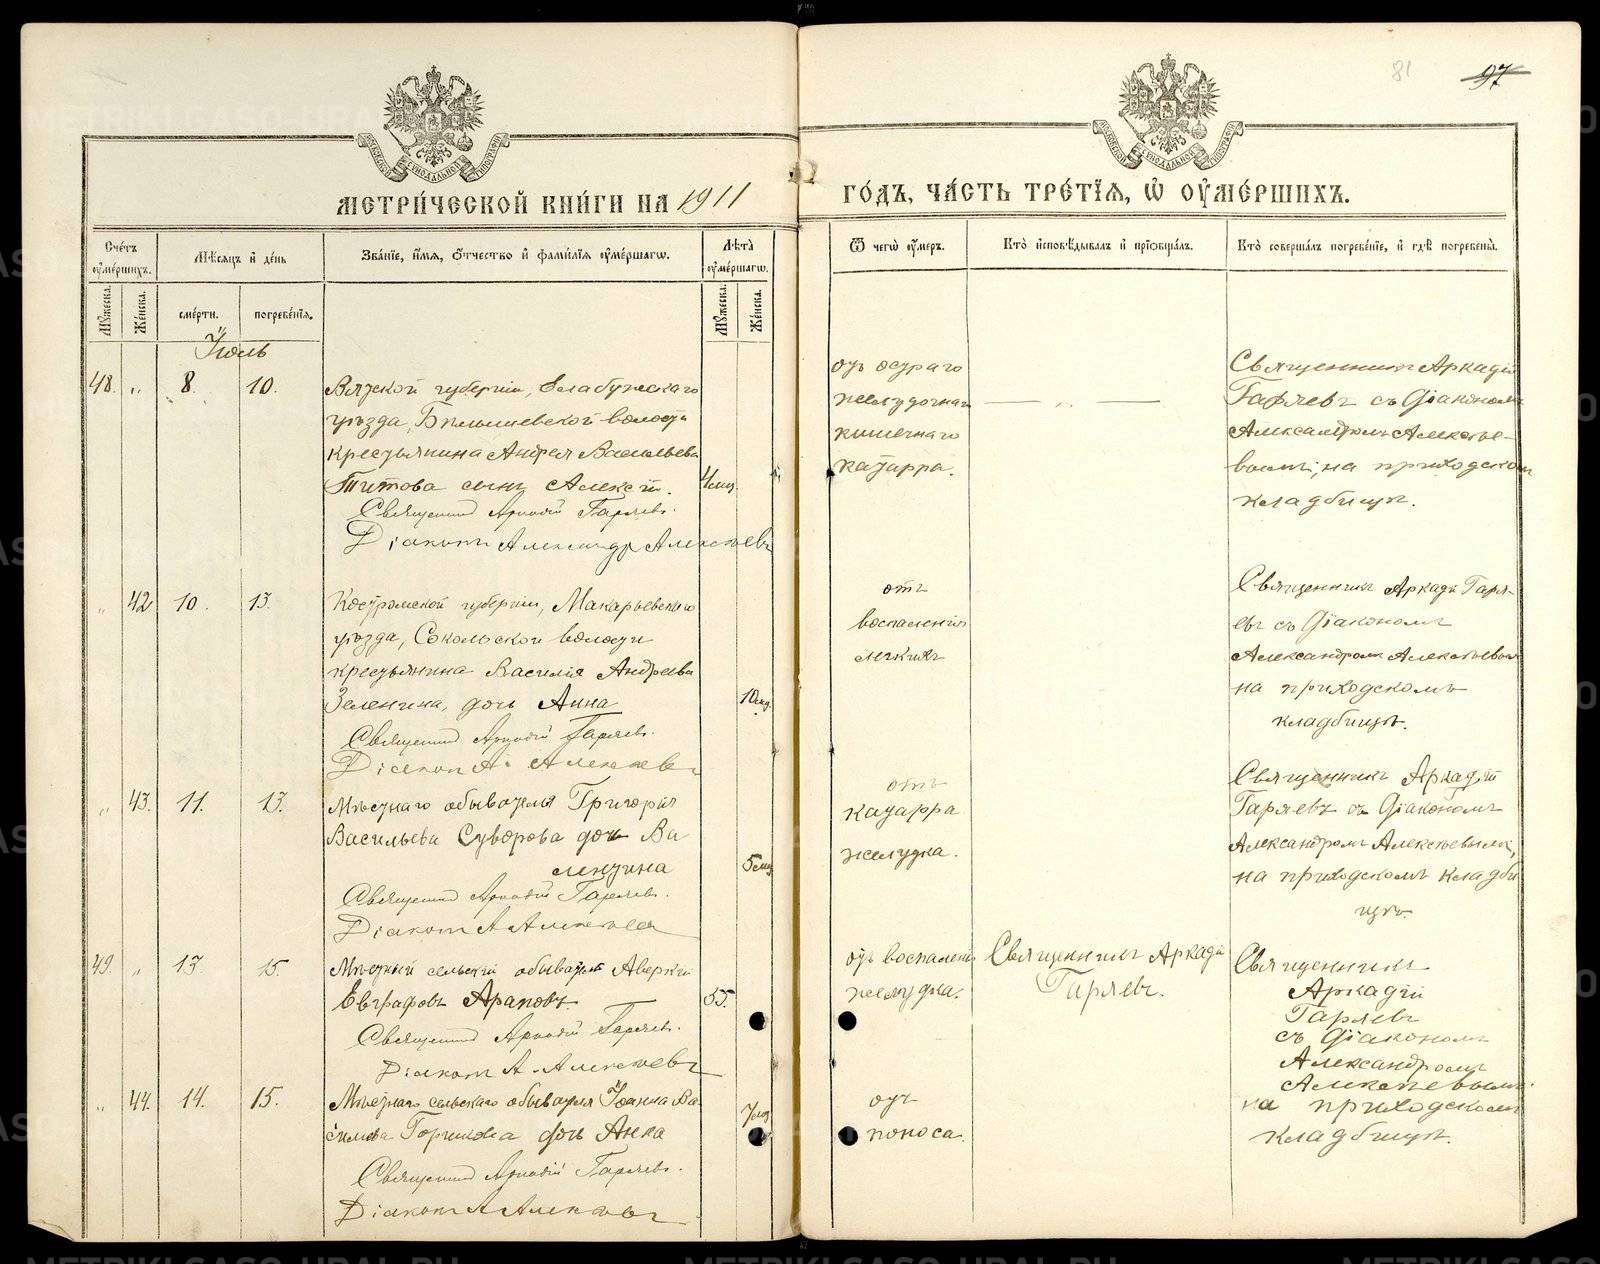 81
97
МЕТРИ́ЧЕСКОЙ КНИ́ГИ НА 1911
ГО́ДЪ, ЧА́СТЬ ТРЕ́ТЇѦ, Ѡ҆ ОУ҆МЕ́РШИХЪ.
Сче́тъ оу҆ме́ршихъ.
Мѣ́сѧцъ и҆ де́нь
Зва́нїе, и҆́мѧ, ѻ҆́тчество и҆ фами́лїѧ оу҆ме́ршагѡ.
Лѣ́та оу҆ме́ршагѡ.
Ѿ чегѡ̀ оу҆́меръ.
Кто̀ и҆сповѣ́дывалъ и҆ прїѡбща́лъ.
Кто̀ соверша́лъ погребе́нїе, и҆ гдѣ̀ погребены̀.
Мꙋ́жеска.
Же́нска.
сме́рти.
погребе́нїѧ.
Мꙋ́жеска.
Же́нска.
Іюль
48. „ 8 10.
Вятской губерніи, Елабужскаго
уѣзда, волости
крестьянина Андрея Васильева
Титова сынъ Алексѣй.
4 мц.
Священникъ Аркадій Гаряевъ.
Діаконъ Александръ Алексѣевъ
отъ остраго
желудочнаго
кишечнаго
катарра.
— „ —
Священникъ Аркадій
Гаряевъ съ Діакономъ
Александромъ Алексѣе-
вымъ, на приходскомъ
кладбищѣ.
„ 42 10. 13.
Костромской губерніи, Макарьевскаго
уѣзда, Сокольской волости
крестьянина Василія Андреева
Зеленина, дочь Анна
Священникъ Аркадій Гаряевъ.
Діаконъ А. Алексѣевъ
отъ
воспаленія
легкихъ
Священникъ Аркадій Гаря-
евъ съ Діакономъ
Александромъ Алексѣевымъ
на приходскомъ
кладбищѣ.
„ 43. 11. 13.
Мѣстнаго обывателя Григорія
Васильева Суворова дочь Ва
лентина
5 мц.
Священникъ Аркадій Гаряевъ.
Діаконъ А Алексѣевъ
отъ
катарра
желудка.
Священникъ Аркадій
Гаряевъ съ Діакономъ
Александромъ Алексѣевымъ,
на приходскомъ кладби
щѣ.
49. „ 13. 15.
Мѣстный сельскій обыватель Аверкій
Евграфовъ Араповъ
55.
Священникъ Аркадій Гаряевъ.
Діаконъ А. Алексѣевъ
отъ воспаленія
желудка.
Священникъ Аркадій
Гаряевъ.
Священникъ
Аркадій
Гаряевъ
съ Діакономъ
Александромъ
Алексѣевымъ
на приходскомъ
кладбищѣ.
„ 44. 14. 15.
Мѣстнаго сельскаго обывателя Іоанна Ва
дочь Анна
Священникъ Аркадій Гаряевъ.
Діаконъ А Алексѣевъ
отъ
поноса.
METRIKI.GASO-URAL.RU